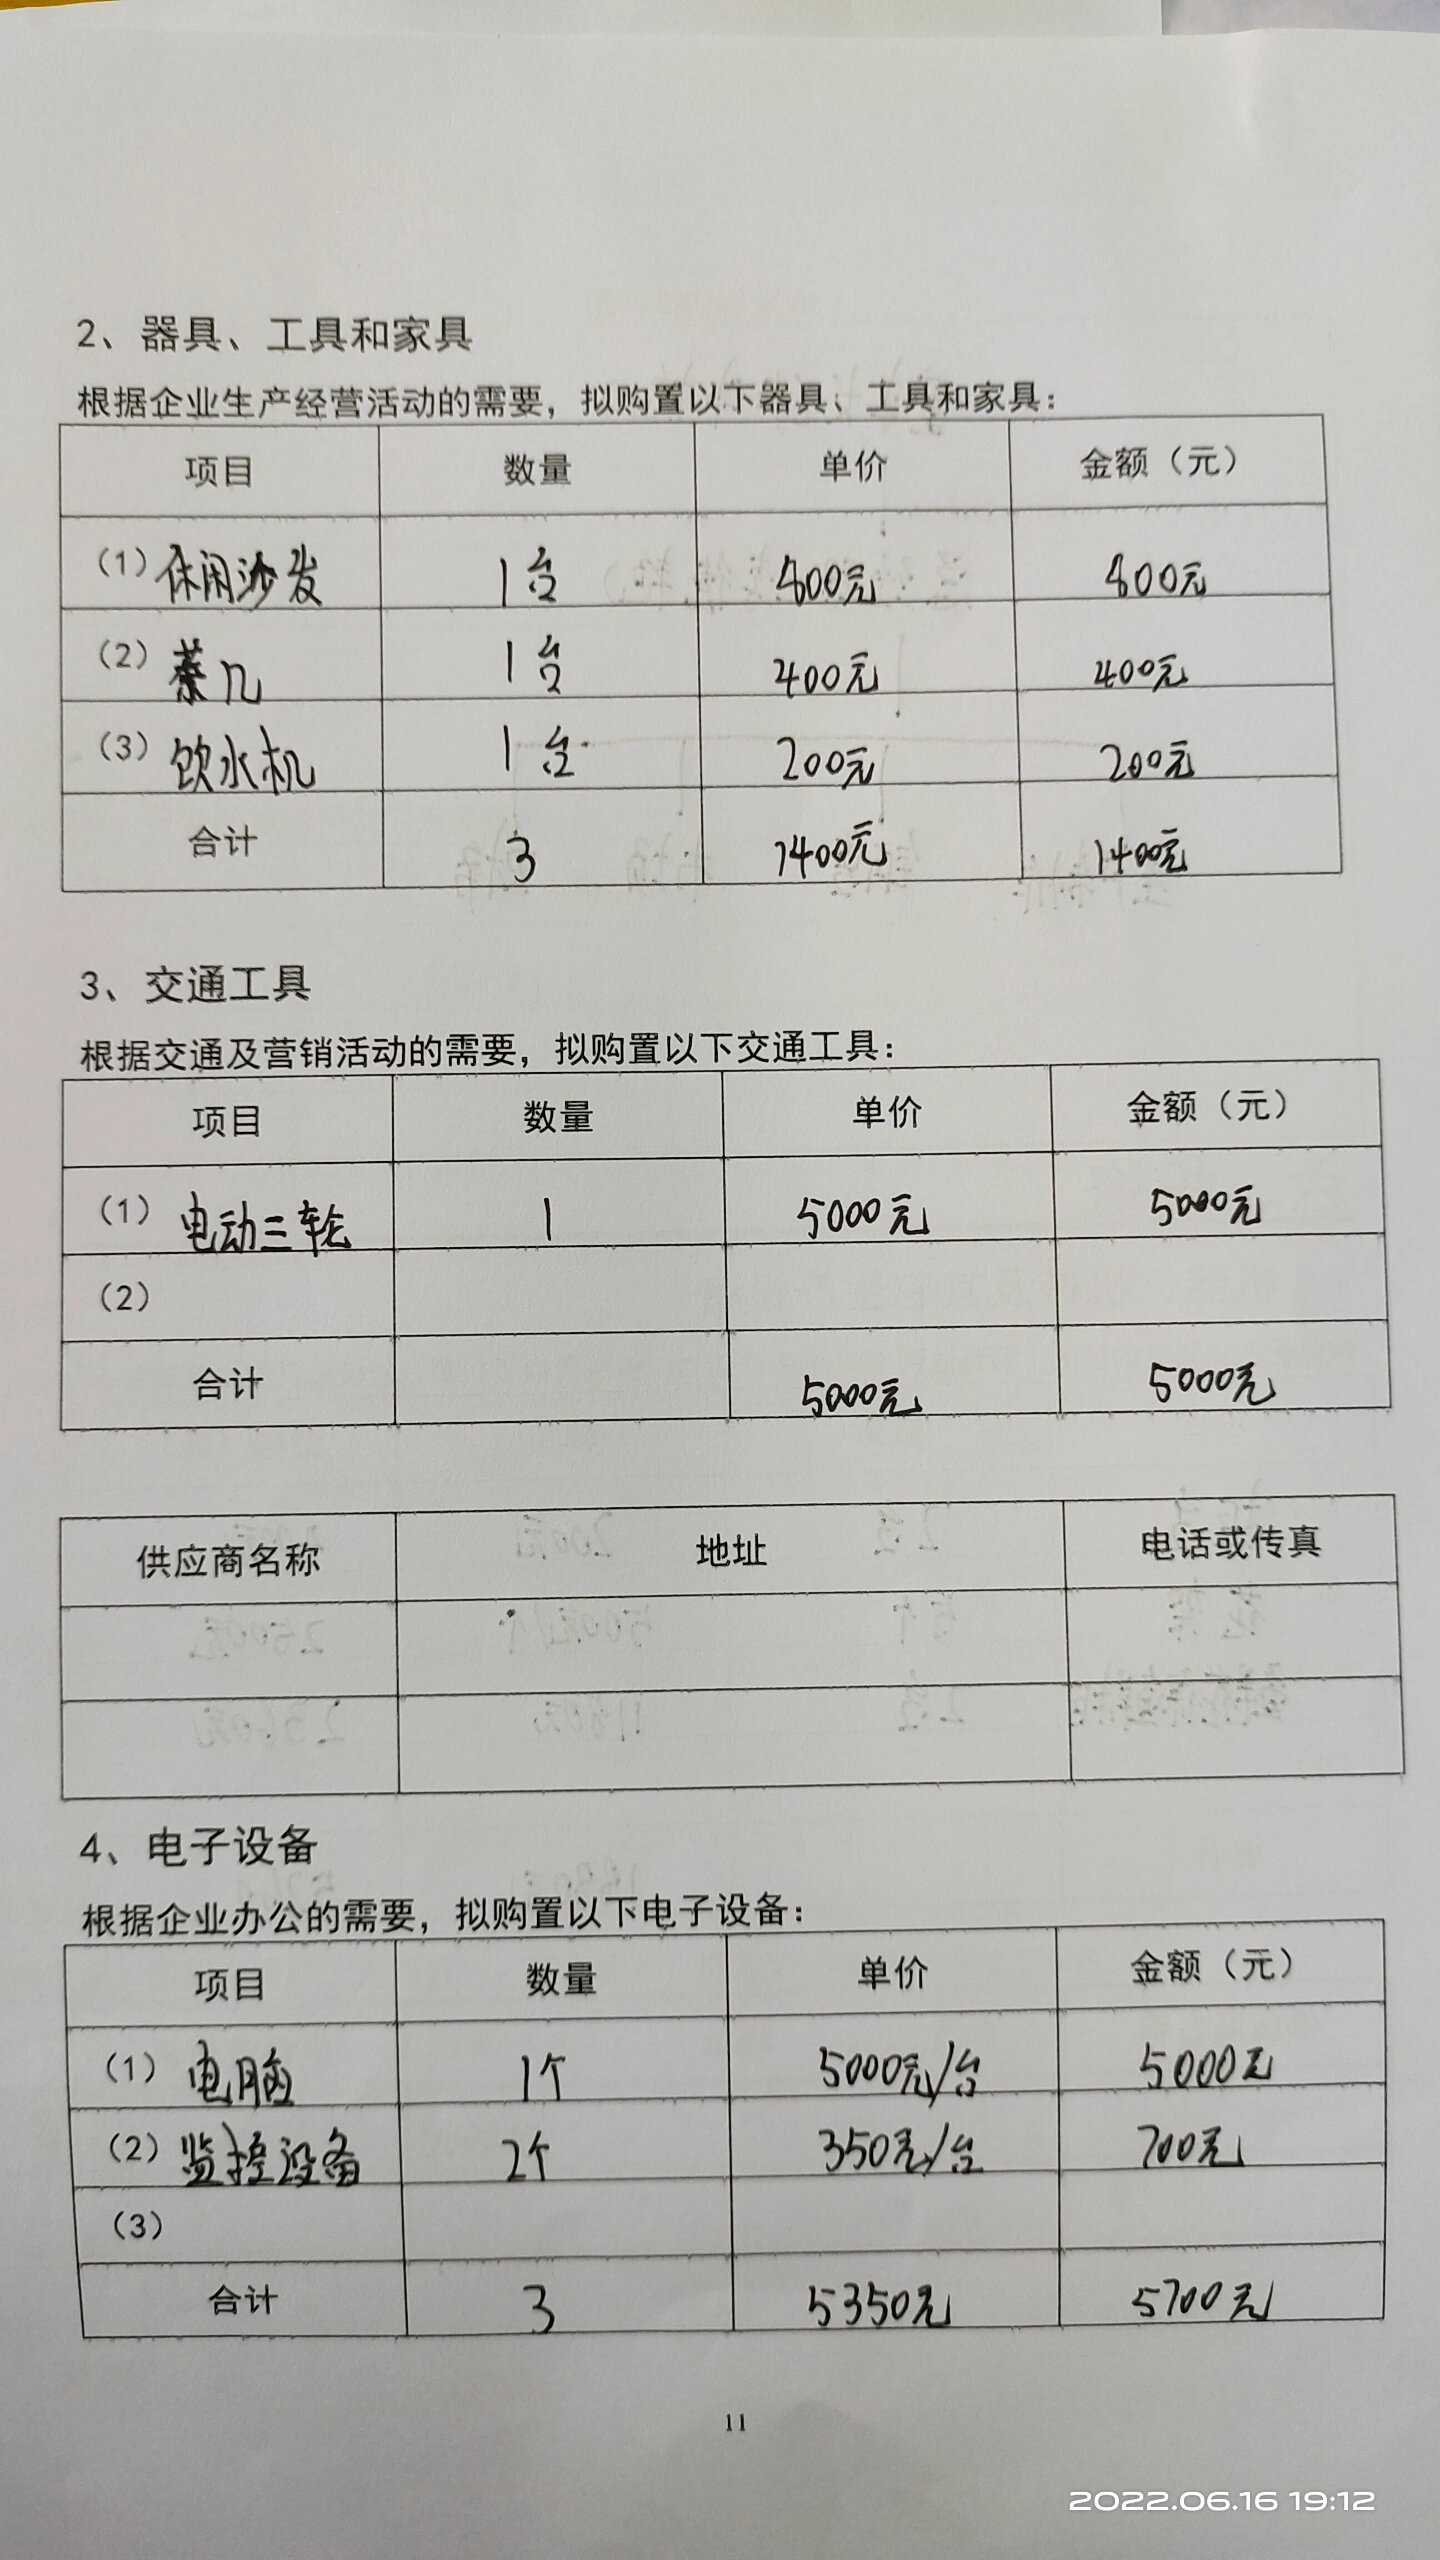 2、器具、工具和家具
根据企业生产经营活动的需要，拟购置以下器具、工具和家具：
项目 数量 单价 金额（元）
（1）休闲沙发 1台 800元 800元
（2）茶几 1台 400元 400元
（3）饮水机 1台 200元 200元
合计 3 1400元 1400元
3、交通工具
根据交通及营销活动的需要，拟购置以下交通工具：
项目 数量 单价 金额（元）
（1）电动三轮 1 5000元 5000元
（2）
合计 5000元 5000元
供应商名称 地址 电话或传真
4、电子设备
根据企业办公的需要，拟购置以下电子设备：
项目 数量 单价 金额（元）
（1）电脑 1个 5000元/台 5000元
（2）监控设备 2个 350元/台 700元
（3）
合计 3 5350元 5700元
11
2022.06.16 19:12